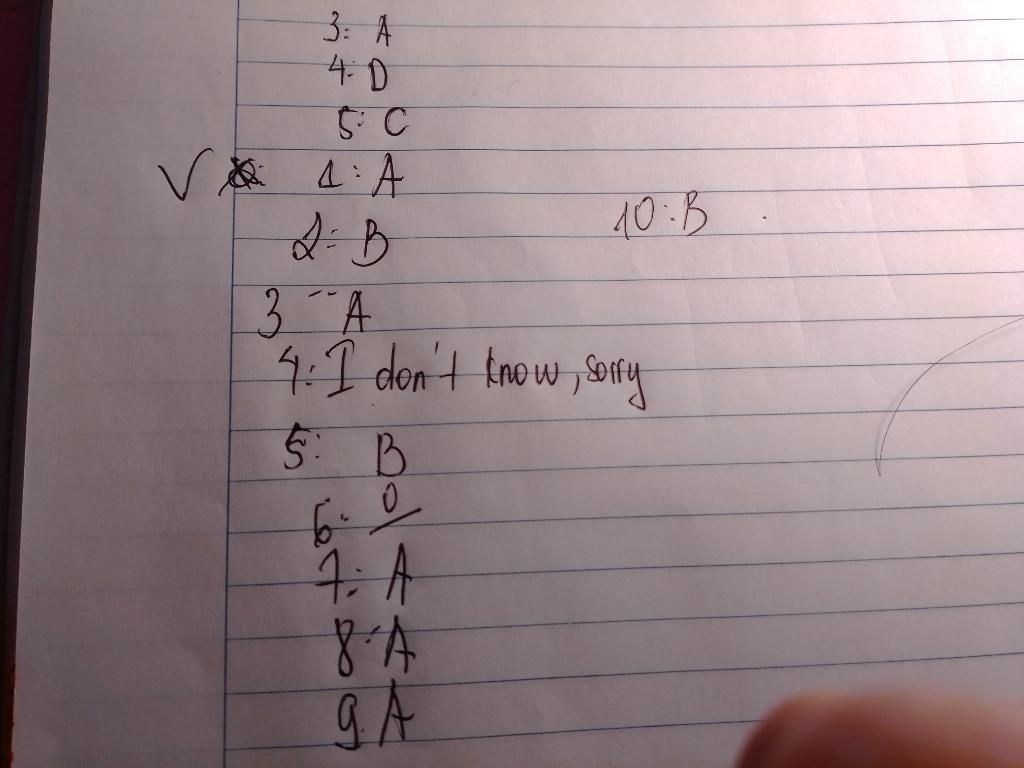 3: A
4: D
5: C
1: A
2: B
10: B
3 -- A
4: I don't know, sorry
5: B
6: 0
7: A
8: A
9. A